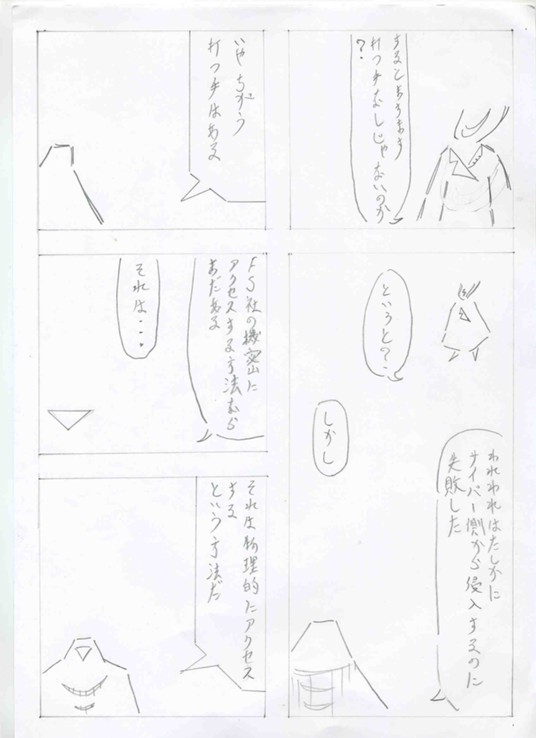 するとますます
打つ手なしじゃないのか
?
いやちがう
打つ手はある
というと?
われわれはたしかに
サイバー側から侵入するのに
失敗した
しかし
FS社の機密に
アクセスする方法なら
まだある
それは・・・
それは物理的にアクセス
する
という方法だ